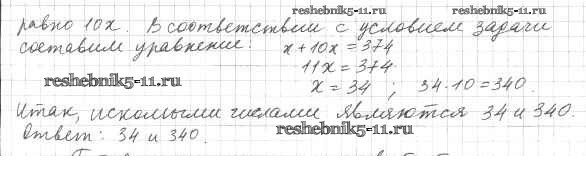 reshebnik5-11.ru
reshebnik5-11.ru
равно 10x. В соответствии с условием задачи
составим уравнение: x + 10x = 374
11x = 374
reshebnik5-11.ru
x = 34 ; 34·10 = 340.
Итак, искомыми числами являются 34 и 340.
Ответ: 34 и 340.
reshebnik5-11.ru